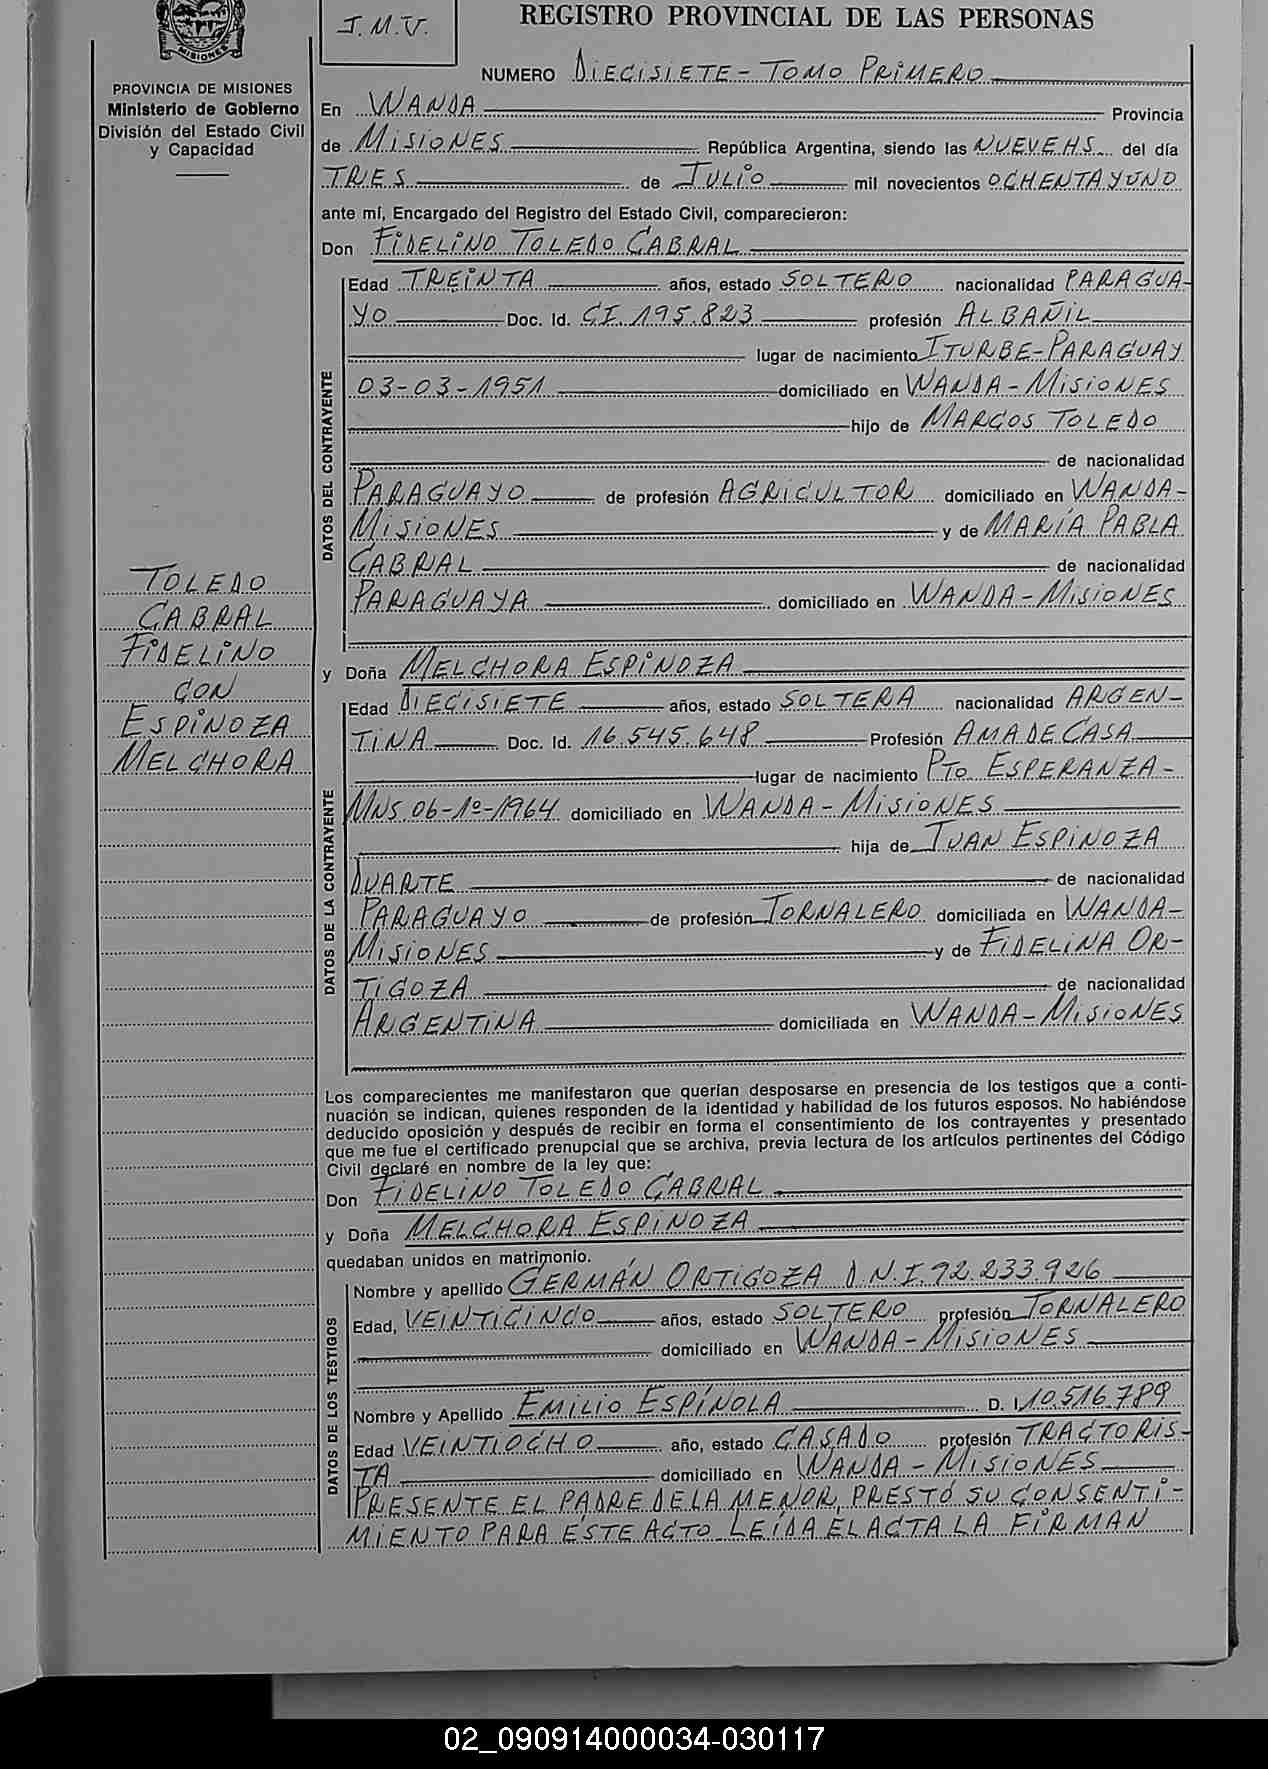 MISIONES
J.M.V.
REGISTRO PROVINCIAL DE LAS PERSONAS
NUMERO DIECISIETE - TOMO PRIMERO
PROVINCIA DE MISIONES
Ministerio de Gobierno
División del Estado Civil
y Capacidad
En WANDA Provincia
de MISIONES República Argentina, siendo las NUEVE HS. del día
TRES de JULIO mil novecientos OCHENTA Y UNO
ante mí, Encargado del Registro del Estado Civil, comparecieron:
Don FIDELINO TOLEDO CABRAL
DATOS DEL CONTRAYENTE
Edad TREINTA años, estado SOLTERO nacionalidad PARAGUA-
YO Doc. Id. CI. 195.823 profesión ALBAÑIL
lugar de nacimiento ITURBE-PARAGUAY
03-03-1951 domiciliado en WANDA - MISIONES
hijo de MARCOS TOLEDO
de nacionalidad
PARAGUAYO de profesión AGRICULTOR domiciliado en WANDA-
MISIONES y de MARÍA PABLA
CABRAL de nacionalidad
PARAGUAYA domiciliado en WANDA - MISIONES
TOLEDO
CABRAL
FIDELINO
CON
ESPINOZA
MELCHORA
y Doña MELCHORA ESPINOZA
DATOS DE LA CONTRAYENTE
Edad DIECISIETE años, estado SOLTERA nacionalidad ARGEN-
TINA Doc. Id. 16.545.648 Profesión AMA DE CASA
lugar de nacimiento PTO. ESPERANZA-
MNS 06-1º-1964 domiciliado en WANDA - MISIONES
hija de JUAN ESPINOZA
DUARTE de nacionalidad
PARAGUAYO de profesión JORNALERO domiciliada en WANDA-
MISIONES y de FIDELINA OR-
TIGOZA de nacionalidad
ARGENTINA domiciliada en WANDA - MISIONES
Los comparecientes me manifestaron que querían desposarse en presencia de los testigos que a conti-
nuación se indican, quienes responden de la identidad y habilidad de los futuros esposos. No habiéndose
deducido oposición y después de recibir en forma el consentimiento de los contrayentes y presentado
que me fue el certificado prenupcial que se archiva, previa lectura de los artículos pertinentes del Código
Civil declaré en nombre de la ley que:
Don FIDELINO TOLEDO CABRAL
y Doña MELCHORA ESPINOZA
quedaban unidos en matrimonio.
DATOS DE LOS TESTIGOS
Nombre y apellido GERMÁN ORTIGOZA D.N.I. 92.233.926
Edad, VEINTICINCO años, estado SOLTERO profesión JORNALERO
domiciliado en WANDA - MISIONES
Nombre y Apellido EMILIO ESPÍNOLA D. I. 10.516.789
Edad VEINTIOCHO año, estado CASADO profesión TRACTORIS-
TA domiciliado en WANDA - MISIONES
PRESENTE EL PADRE DE LA MENOR, PRESTÓ SU CONSENTI-
MIENTO PARA ÉSTE ACTO LEÍDA EL ACTA LA FIRMAN
02_090914000034-030117